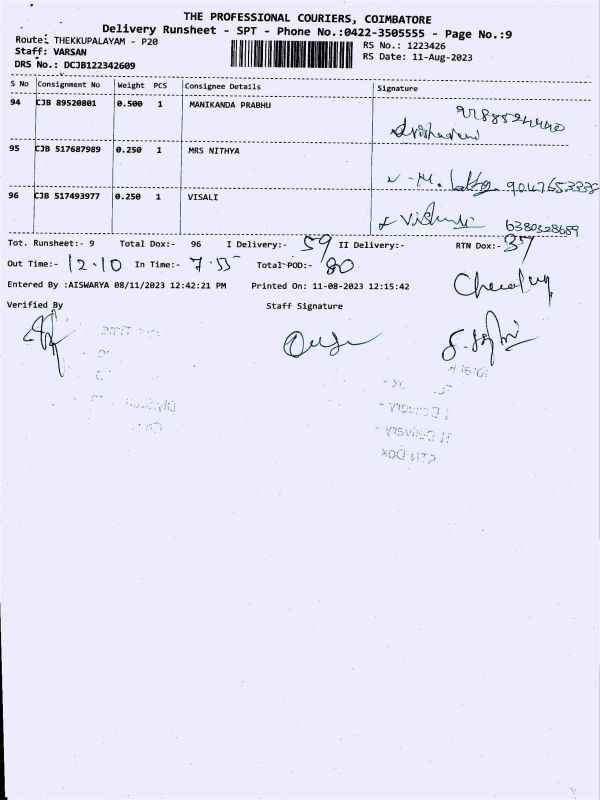 THE PROFESSIONAL COURIERS, COIMBATORE
Delivery Runsheet - SPT - Phone No.:0422-3505555 - Page No.:9
Route: THEKKUPALAYAM - P20
RS No.: 1223426
Staff: VARSAN
RS Date: 11-Aug-2023
DRS No.: DCJB122342609
S No Consignment No Weight PCS Consignee Details Signature
94 CJB 89520801 0.500 1 MANIKANDA PRABHU
95 CJB 517687989 0.250 1 MRS NITHYA
96 CJB 517493977 0.250 1 VISALI
6380328689
Tot. Runsheet:- 9 Total Dox:- 96 I Delivery:- 59 II Delivery:- RTN Dox:- 37
Out Time:- 12.10 In Time:- 7.55 Total-POD:- 80
Entered By :AISWARYA 08/11/2023 12:42:21 PM Printed On: 11-08-2023 12:15:42
Verified By Staff Signature